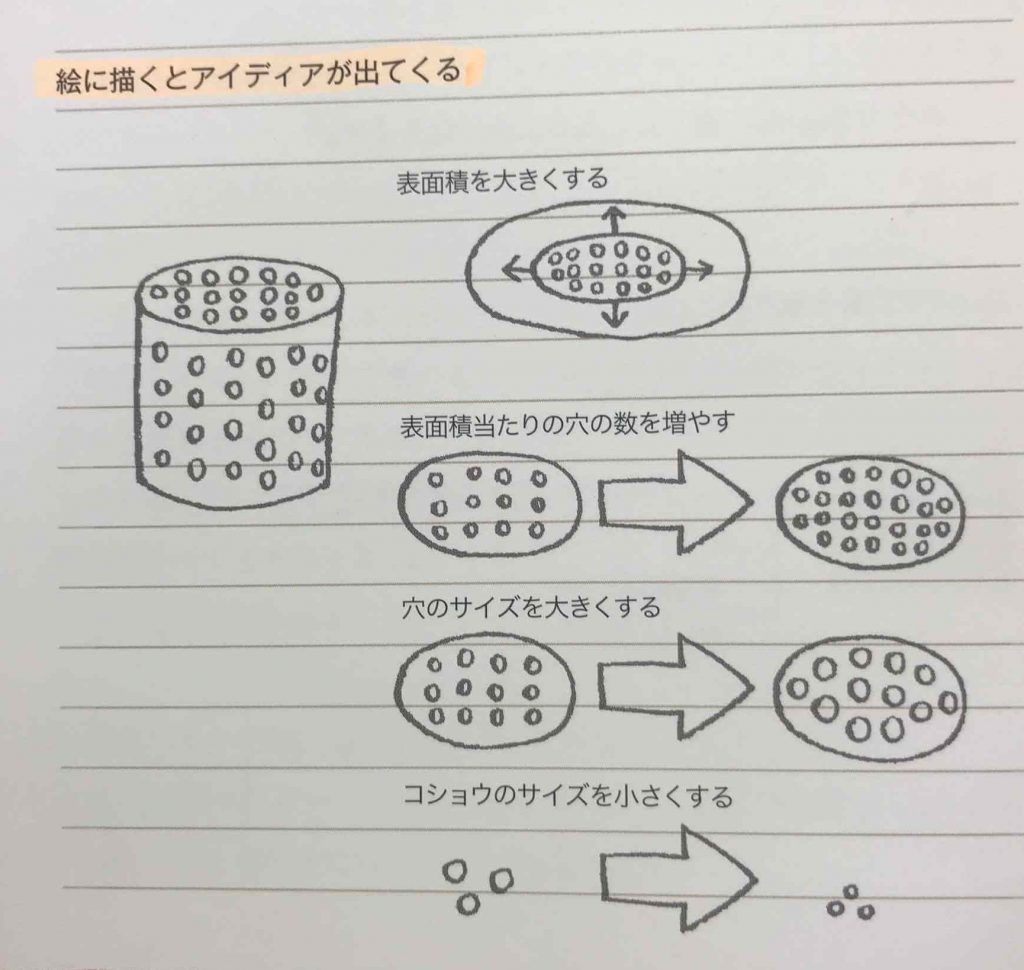 絵に描くとアイディアが出てくる
表面積を大きくする
表面積当たりの穴の数を増やす
穴のサイズを大きくする
コショウのサイズを小さくする